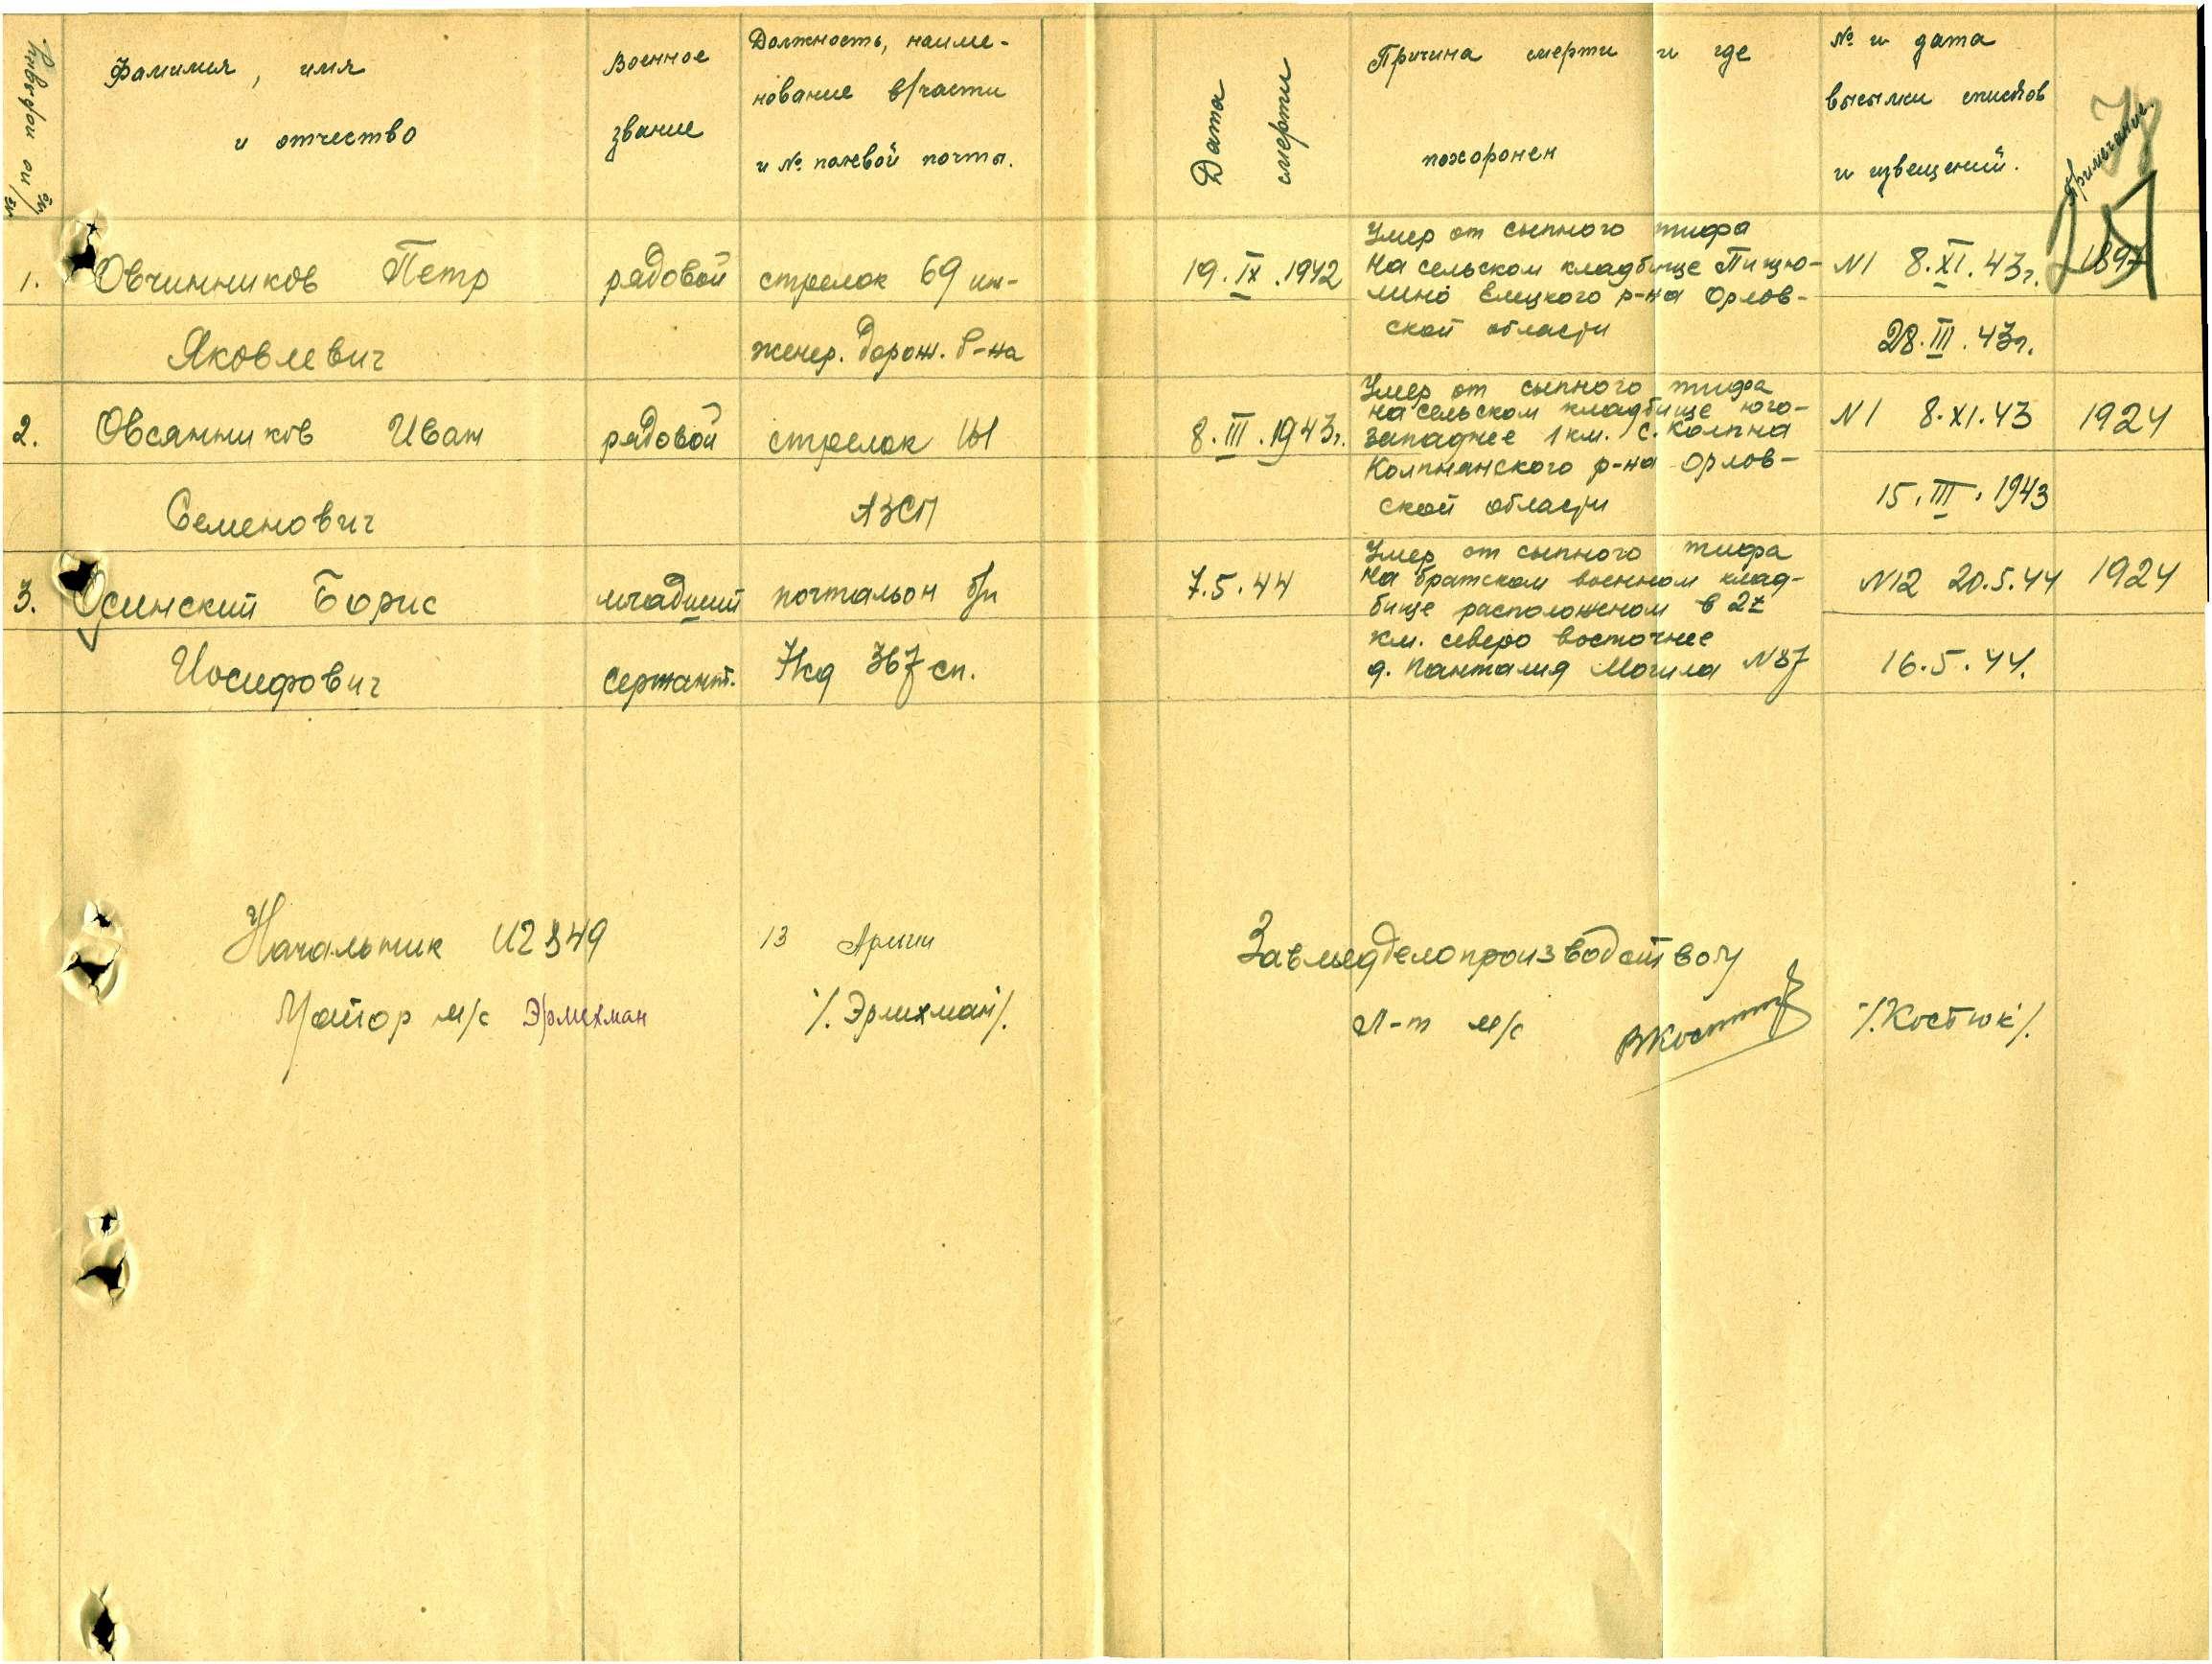 Фамилия, имя
и отчество
Военное
звание
Должность, наиме-
нование в/части
и № полевой почты.
Дата
смерти
Причина смерти и где
похоронен
№ и дата
высылки списков
и извещений.
Примечание
1. Овчинников Петр
Яковлевич
рядовой
стрелок 69 ин-
женер. дорож. б-на
19.IX.1942
Умер от сыпного тифа
на сельском кладбище Пищю-
лино Елецкого р-на Орлов-
ской области
N1 8.XI.43г.
28.III.43г.
1897
2. Овсянников Иван
Семенович
рядовой
стрелок 141
АЗСП
8.III.1943г.
Умер от сыпного тифа
на сельском кладбище юго-
западнее 1 км. с. Колпна
Колпнянского р-на Орлов-
ской области
N1 8.XI.43
15.III.1943
1924
3. Осинский Борис
Иосифович
младший
сержант.
почтальон б/п
71сд 367 сп.
7.5.44
Умер от сыпного тифа
на братском военном клад-
бище расположенном в 2х
км. северо восточнее
д. Панталия Могила N87
N12 20.5.44
16.5.44.
1924
Начальник 13 Армии
Майор м/с Эрлихман /Эрлихман/.
Завмедделопроизводством
Л-т м/с ВКостюк /Костюк/.